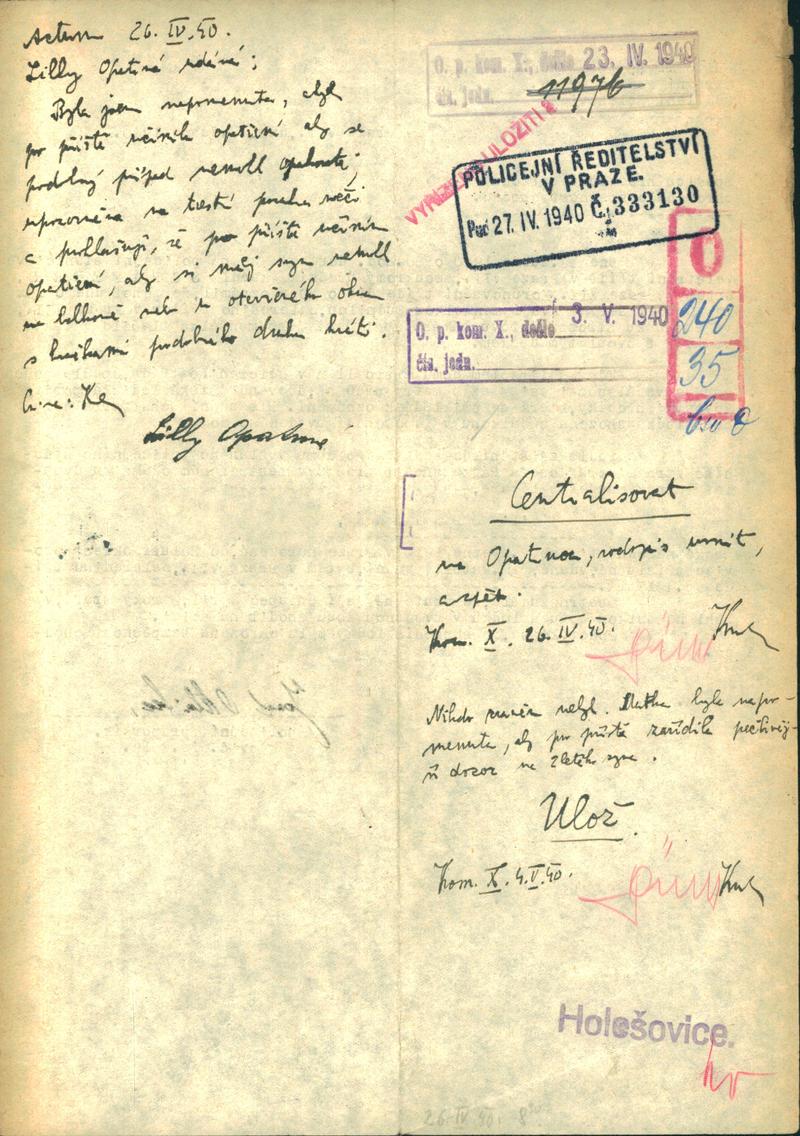 Actum 26. IV. 40.
Lilly Opatná udává:
Byla jsem napomenuta, abych
po příště učinila opatření aby se
podobný případ nemohl opakovati,
upozorněna na trestí
a prohlašuji, že po příště učiním
opatření, aby si můj syn nemohl
na balkoně neb u otevřeného okna
s hračkami podobného druhu hráti.
Lilly Opatná
O. p. kom. X., došlo 23. IV. 1940
čís. jedn. 11976
VYŘÍZENO ULOŽITI
POLICEJNÍ ŘEDITELSTVÍ
V PRAZE.
27. IV. 1940 Č. 333130
O
240
35
O. p. kom. X., došlo 3. V. 1940
čís. jedn.
Centralisovat
na Opatnou, rodopis
a zpět.
Kom. X. 26. IV. 40.
Nikdo zraněn nebyl. Matka byla napo-
menuta, aby po příště zařídila pečlivěj-
ší dozor na 2letého syna.
Ulož.
Kom. X. 4. V. 40.
Holešovice.
26. IV. 40.